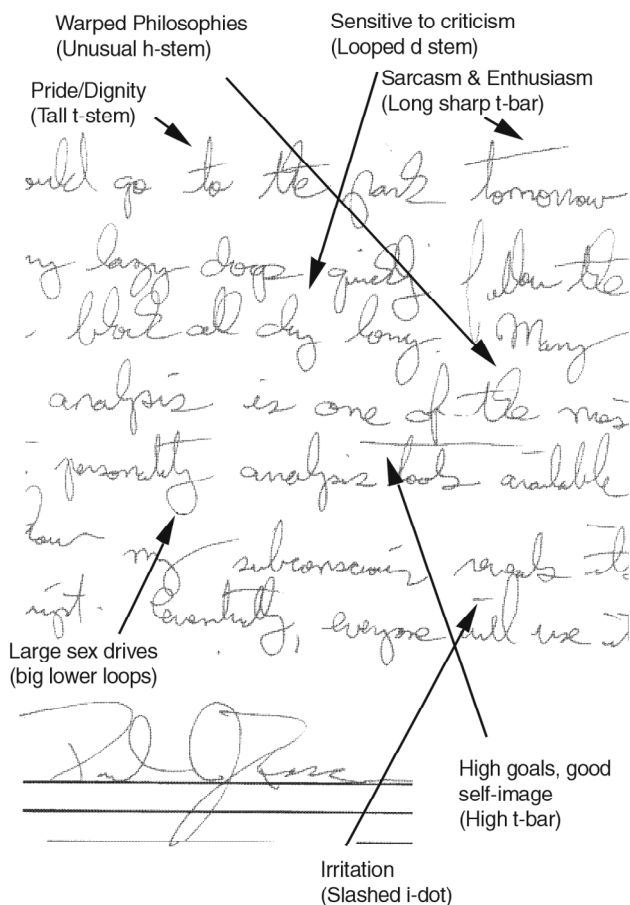 Warped Philosophies
(Unusual h-stem)
Sensitive to criticism
(Looped d stem)
Pride/Dignity
(Tall t-stem)
Sarcasm & Enthusiasm
(Long sharp t-bar)
ould go to the park tomorrow
ny lazy dogs quickly follow the
block all day long. Many
analysis is one of the mos
personality analysis tools available
how my subconscious reveals its
ript. Eventually, everyone will use it
Large sex drives
(big lower loops)
High goals, good
self-image
(High t-bar)
Irritation
(Slashed i-dot)